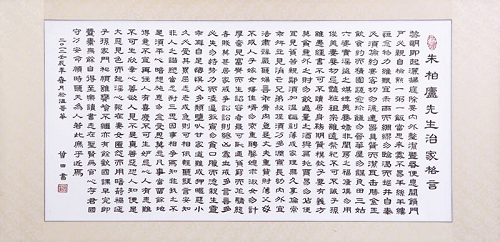 朱柏廬先生治家格言
黎明即起灑掃庭除要內外整潔既昏便息關鎖門
戶必親自檢點一粥一飯當思來處不易半絲半縷
恆念物力維艱宜未雨而綢繆毋臨渴而掘井自奉
必須儉約宴客切勿留連器具質而潔瓦缶勝金玉
飲食約而精園蔬愈珍饈勿營華屋勿謀良田三姑
六婆實淫盜之媒婢美妾嬌非閨房之福童僕勿用
俊美妻妾切忌豔妝祖宗雖遠祭祀不可不誠子孫
雖愚經書不可不讀居身務期質樸教子要有義方
莫貪意外之財莫飲過量之酒與肩挑貿易毋佔便
宜見貧苦親鄰須加溫恤刻薄成家理無久享倫常
乖舛立見消亡兄弟叔姪須分多潤寡長幼內外宜
法肅辭嚴聽婦言乖骨肉豈是丈夫重貲財薄父母
不成人子嫁女擇佳婿毋索重聘娶媳求淑女勿計
厚奩見富貴而生諂容者最可恥遇貧窮而作驕態
者賤莫甚居家戒爭訟訟則終凶處世戒多言言多
必失勿恃勢力而凌逼孤寡毋貪口腹而恣殺牲禽
乖僻自是悔誤必多頹惰自甘家道難成狎暱惡少
久必受其累屈志老成急則可相依輕聽發言安知
非人之譖愬當忍耐三思因事相爭焉知非我之不
是須平心暗想施惠無念受恩莫忘凡事當留餘地
得意不宜再往人有喜慶不可生妒忌心人有禍患
不可生欣幸心善欲人見不是真善惡恐人知便是
大惡見色而起淫心報在妻女匿怨而用暗箭禍延
子孫家門和順雖饔飧不繼亦有餘歡國課早完即
囊橐無餘自得至樂讀書志在聖賢為官心存君國
守分安命順時聽天為人若此庶乎近焉